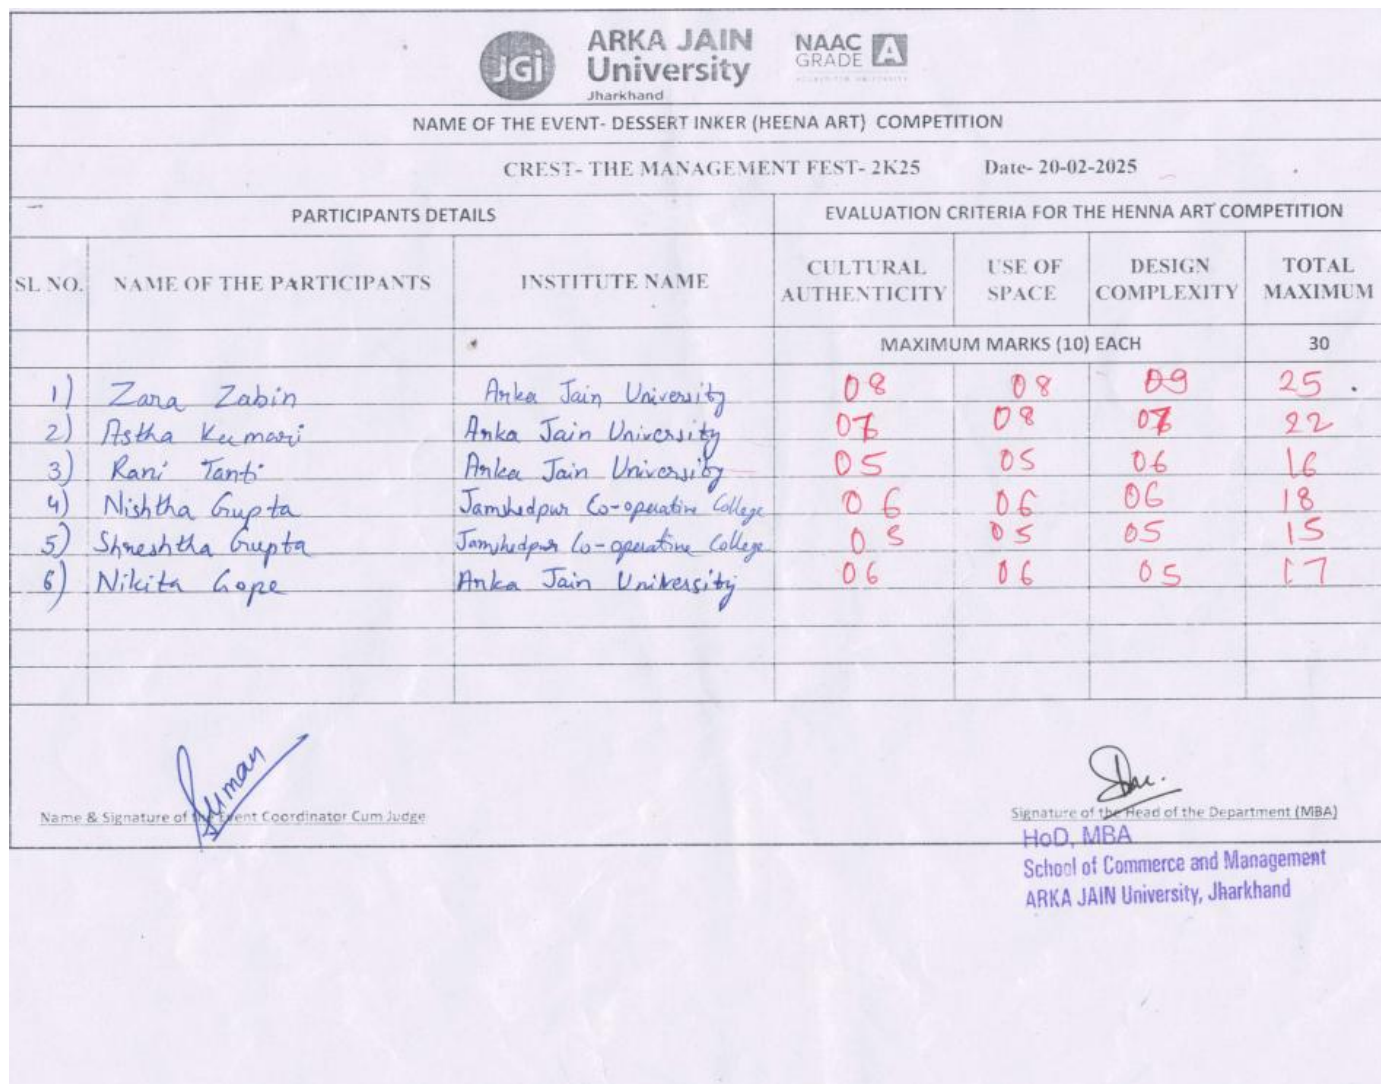 JGi
ARKA JAIN
University
Jharkhand
NAAC
GRADE A
NAME OF THE EVENT- DESSERT INKER (HEENA ART) COMPETITION
CREST- THE MANAGEMENT FEST- 2K25 Date- 20-02-2025
PARTICIPANTS DETAILS EVALUATION CRITERIA FOR THE HENNA ART COMPETITION
SL NO. NAME OF THE PARTICIPANTS INSTITUTE NAME CULTURAL AUTHENTICITY USE OF SPACE DESIGN COMPLEXITY TOTAL MAXIMUM
MAXIMUM MARKS (10) EACH 30
1) Zara Zabin Arka Jain University 08 08 09 25
2) Astha Kumari Arka Jain University 07 08 07 22
3) Rani Tanti Arka Jain University 05 05 06 16
4) Nishtha Gupta Jamshedpur Co-operative College 06 06 06 18
5) Shreshtha Gupta Jamshedpur Co-operative College 05 05 05 15
6) Nikita Gope Arka Jain University 06 06 05 17
Suman
Name & Signature of the Event Coordinator Cum Judge
Signature of the Head of the Department (MBA)
HoD, MBA
School of Commerce and Management
ARKA JAIN University, Jharkhand